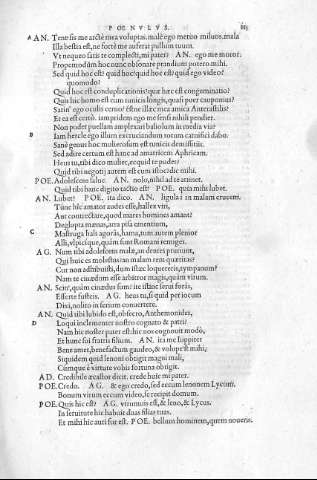 POENVLVS.
A AN. Tene sis me arctè mea voluptas. malè ego metuo miluos. mala
Illa bestia est, ne fortè me auferat pullum tuum.
Vt nequeo satis te complecti, mi pater! AN. ego me moror.
Propemodũ hoc nunc obsonare prandium potero mihi.
Sed quid hoc est? quid hoc? quid hoc est? quid ego video?
quomodo?
Quid hoc est conduplicationis? quæ hæc est congeminatio?
Quis hic homo est cum tunicis longis, quasi puer cauponius?
Satin' ego oculis cerno? éstne illæc mea amica Anterastilis?
Et ea est certò. iam pridem ego me sensi nihili pendier.
Non pudet puellam amplexari baiiolum in media via?
B Iam hercle ego illum excruciandum totum carnifici dabo.
Sanè genus hoc mulierosum est tunicis demissitiis.
Sed adire certum est hanc ad amatricem Aphricam.
Heus tu, tibi dico mulier, ecquid te pudet?
Quid tibi negotij autem est cum istac? dic mihi.
POE. Adolescens salue. AN. nolo, nihil ad te attinet.
Quid tibi hanc digito tactio est? POE. quia mihi lubet.
AN. Lubet? POE. ita dico. AN. ligula i in malam crucem.
Túne hîc amator audes esse, hallex viri,
Aut contrectare, quod mares homines amant?
Deglupta mænas,
C Mastruga hals agorâs, hama, tum autem plenior
Alli, vlpicique, quàm sunt Romani remiges.
AG. Num tibi adolescens malæ, aut dentes pruriunt,
Qui huic es molestus? an malam rem quæritas?
Cur non adhibuisti, dum istæc loquereris, tympanum?
Nam te cinædum esse arbitror magis, quàm virum.
AN. Scin', quàm cinædus sum? ite istinc serui foràs,
Efferte fusteis. AG. heus tu, si quid per iocum
Dixi, nolito in serium conuertere.
AN. Quid tibi lubido est, obsecro, Anthemonides,
D Loqui inclementer nostro cognato & patri?
Nam hic noster pater est: hic nos cognouit modò,
Et hunc sui fratris filium. AN. ita me Iuppiter
Bene amet, benefactum gaudeo, & volupe est mihi,
Siquidem quid lenoni obtigit magni mali,
Cumque è virtute vobis fortuna obtigit.
AD. Credibile ecastor dicit. crede huic mi pater.
POE. Credo. AG. & ego credo, sed eccum lenonem Lycum.
Bonum virum eccum video, se recipit domum.
POE. Quis hic est? AG. vtrumuis est, & leno, & Lycus.
In seruitute hic habuit duas filias tuas.
Et mihi hic auri fur est. POE. bellum hominem, quem noueris.